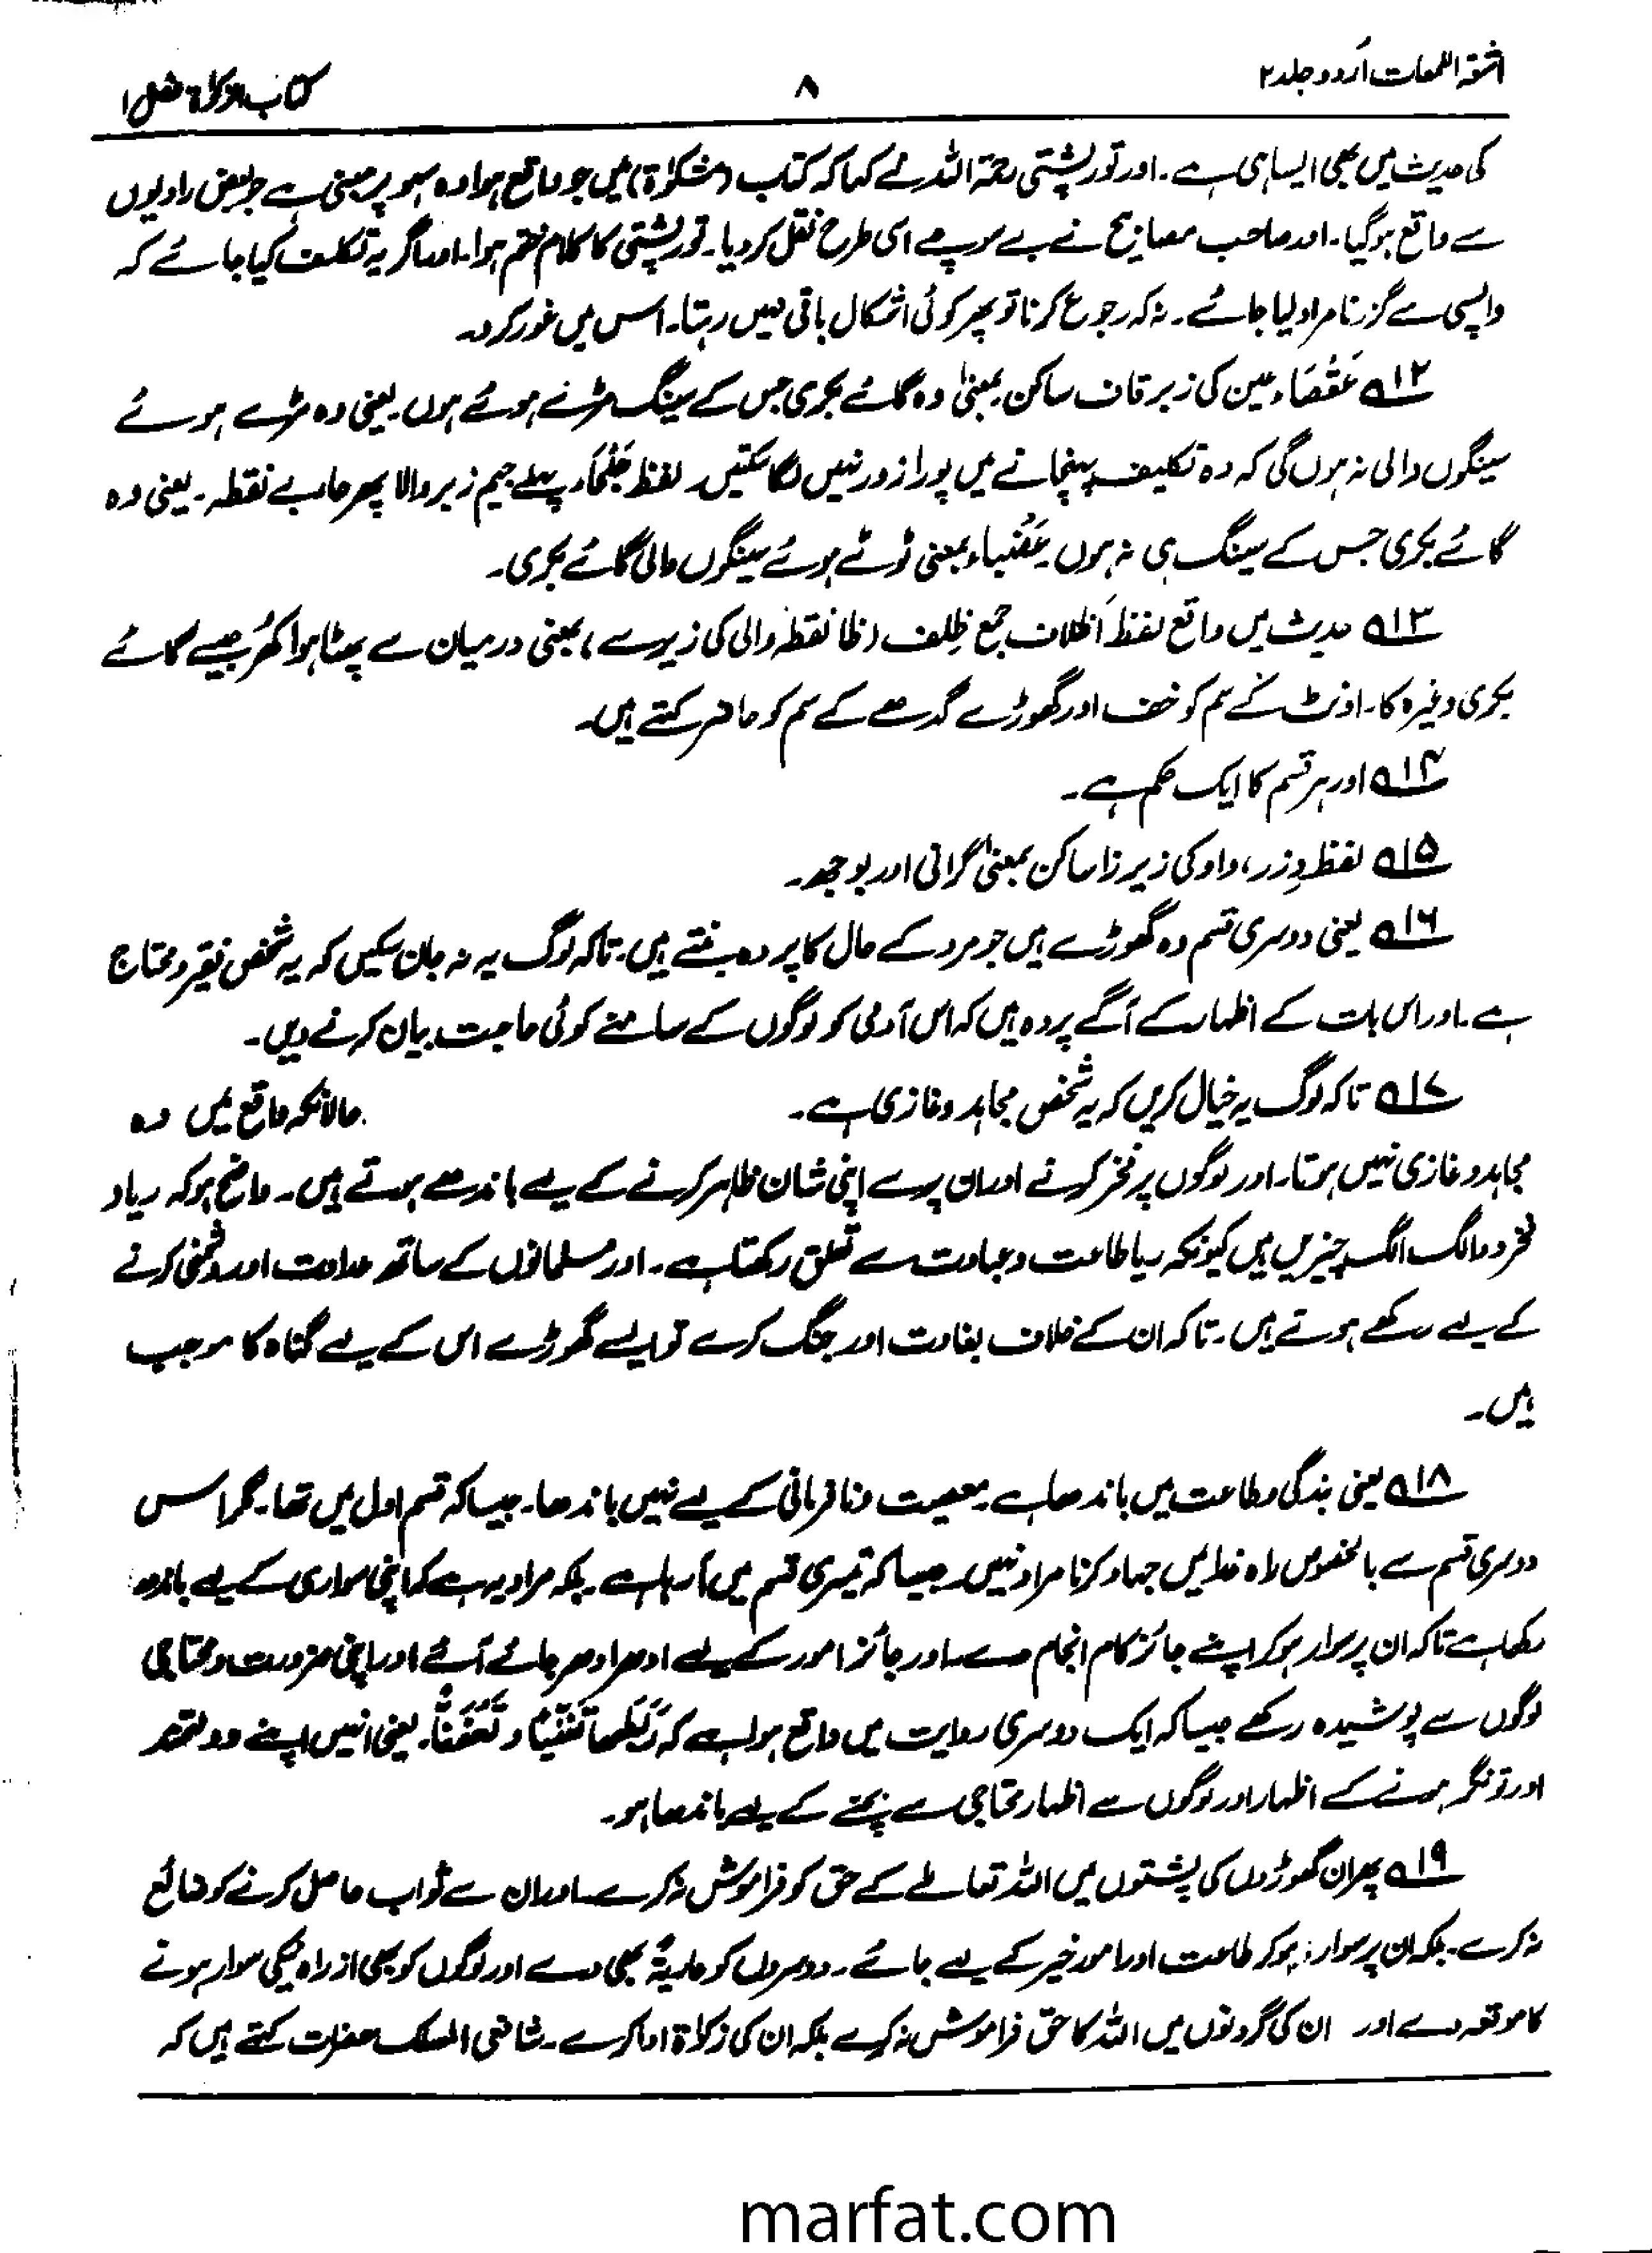 اشعۃ اللمعات اردو جلد ۲
۸
کتاب الزکوٰۃ فصل ۱
کی حدیث میں بھی ایسا ہی ہے۔ اور تورپشتی رحمۃ اللہ نے کہا کہ کتاب (مشکوٰۃ) میں جو واقع ہوا وہ سہو پر مبنی ہے جو بعض راویوں
سے واقع ہوگیا۔ اور صاحب مصابیح نے بے سوچے اسی طرح نقل کر دیا۔ تورپشتی کا کلام ختم ہوا۔ اور اگر یہ تکلف کیا جائے کہ
واپسی سے گزرنا مراد لیا جائے۔ نہ کہ رجوع کرنا تو پھر کوئی اشکال باقی نہیں رہتا۔ اس میں غور کرو۔
۱۲؎ عَقْصَاء عین کی زبر قاف ساکن بمعنیٰ وہ گائے بکری جس کے سینگ مڑے ہوئے ہوں۔ یعنی وہ مڑے ہوئے
سینگوں والی نہ ہوں گی کہ وہ تکلیف پہنچانے میں پورا زور نہیں لگا سکتیں۔ لفظ جَلْحَاء پہلے جیم زبر والا پھر حاء بے نقطہ۔ یعنی وہ
گائے بکری جس کے سینگ ہی نہ ہوں۔ عَضْباء بمعنی ٹوٹے ہوئے سینگوں والی گائے بکری۔
۱۳؎ حدیث میں واقع لفظ اَظلاف جمع ظِلف (ظا نقطہ والی کی زیر سے) بمعنی درمیان سے پھٹا ہوا کھُر جیسے گائے
بکری وغیرہ کا۔ اونٹ کے سم کو خف اور گھوڑے گدھے کے سم کو حافر کہتے ہیں۔
۱۴؎ اور ہر قسم کا ایک حکم ہے۔
۱۵؎ لفظ وِزر، واو کی زیر زا ساکن بمعنیٰ گرانی اور بوجھ۔
۱۶؎ یعنی دوسری قسم وہ گھوڑے ہیں جو مرد کے حال کا پردہ بنتے ہیں۔ تاکہ لوگ یہ نہ جان سکیں کہ یہ شخص فقیر و محتاج
ہے۔ اور اس بات کے اظہار کے آگے پردہ ہیں کہ اس آدمی کو لوگوں کے سامنے کوئی حاجت بیان کرنے دیں۔
۱۷؎ تاکہ لوگ یہ خیال کریں کہ یہ شخص مجاہد و غازی ہے۔ حالانکہ واقع میں وہ
مجاہد و غازی نہیں ہوتا۔ اور لوگوں پر فخر کرنے اور ان پر اپنی شان ظاہر کرنے کے لیے باندھے ہوتے ہیں۔ واضح ہو کہ ریا و
فخر دو الگ الگ چیزیں ہیں کیونکہ ریا طاعت و عبادت سے تعلق رکھتا ہے۔ اور مسلمانوں کے ساتھ عداوت اور دشمنی کرنے
کے لیے رکھے ہوتے ہیں۔ تاکہ ان کے خلاف بغاوت اور جنگ کرے تو ایسے گھوڑے اس کے لیے گناہ کا موجب
ہیں۔
۱۸؎ یعنی بندگی و طاعت میں باندھا ہے۔ معصیت و نافرمانی کے لیے نہیں باندھا۔ جیسا کہ قسم اول میں تھا۔ مگر اس
دوسری قسم سے بالخصوص راہ خدا میں جہاد کرنا مراد نہیں۔ جیسا کہ تیسری قسم میں آ رہا ہے۔ بلکہ مراد یہ ہے کہ اپنی سواری کے لیے باندھ
رکھا ہے تاکہ ان پر سوار ہو کر اپنے جائز کام انجام دے۔ اور جائز امور کے لیے ادھر ادھر جائے آئے اور اپنی ضرورت و محتاجی
لوگوں سے پوشیدہ رکھے جیسا کہ ایک دوسری روایت میں واقع ہوا ہے کہ رَبَطَهَا تَغَنِّیًا وَ تَعَفُّفًا۔ یعنی انہیں اپنے دولتمند
اور تونگر ہونے کے اظہار اور لوگوں سے اظہار محتاجی سے بچنے کے لیے باندھا ہو۔
۱۹؎ پھر ان گھوڑوں کی پشتوں میں اللہ تعالےٰ کے حق کو فراموش نہ کرے۔ اور ان سے ثواب حاصل کرنے کو ضائع
نہ کرے۔ بلکہ ان پر سوار ہو کر طاعت اور امور خیر کے لیے جائے۔ دوسروں کو عاریۃً بھی دے اور لوگوں کو بھی از راہ نیکی سوار ہونے
کا موقعہ دے اور ان کی گردنوں میں اللہ کا حق فراموش نہ کرے بلکہ ان کی زکوٰۃ ادا کرے۔ شافعی المسلک حضرات کہتے ہیں کہ
marfat.com